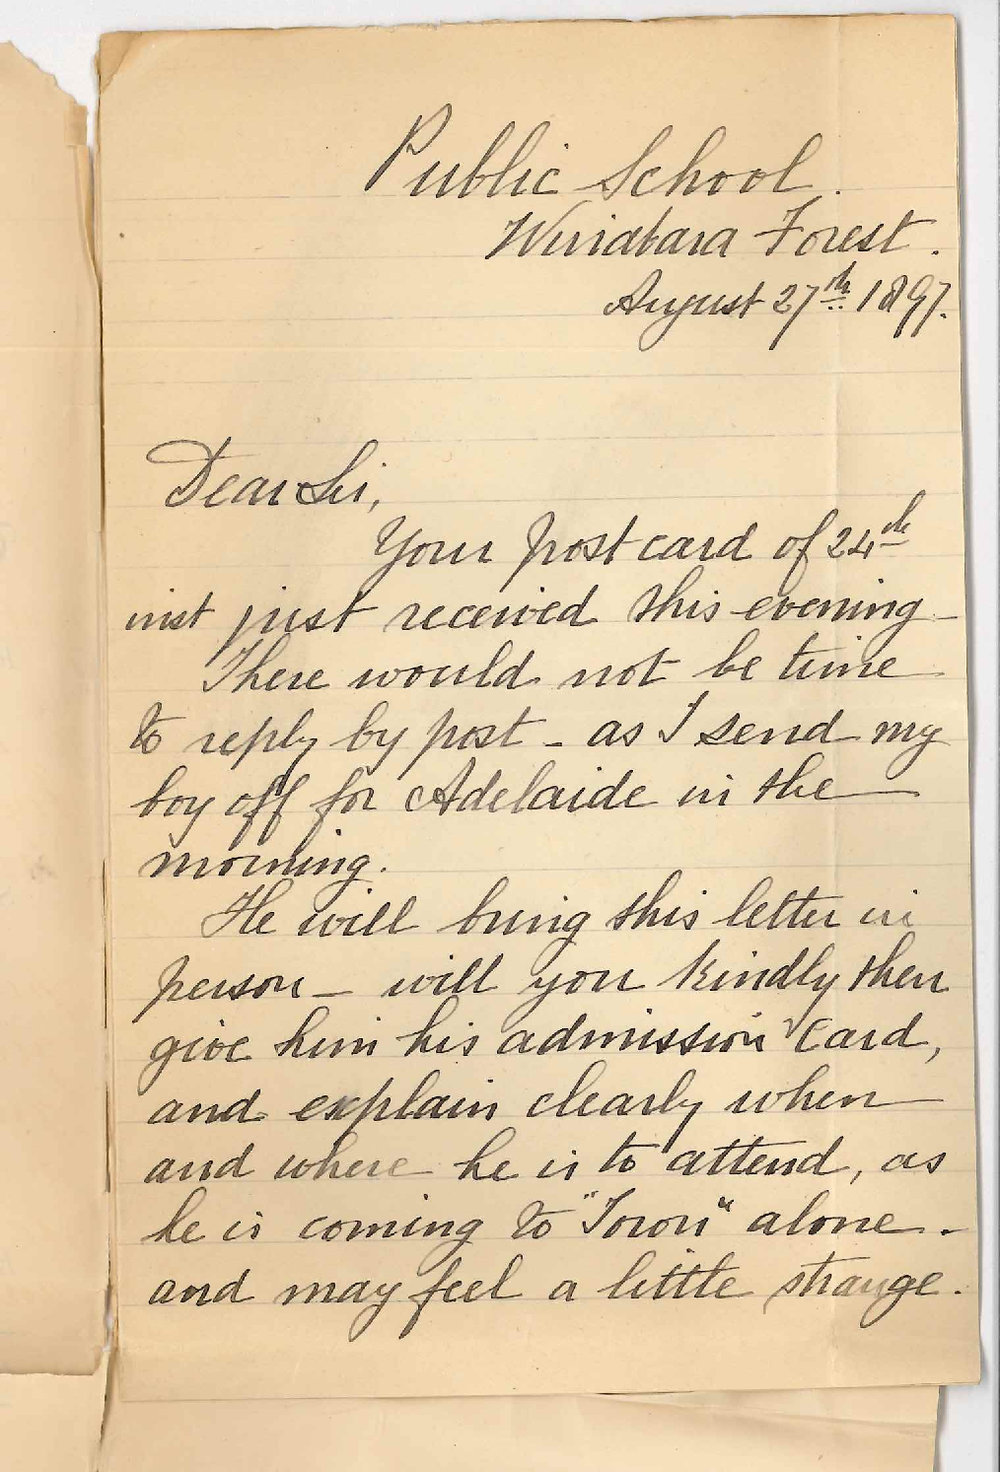 Public School.
Wirrabara Forest.
August 27th 1897.
Dear Sir,
Your post card of 24th
inst just received this evening -
There would not be time
to reply by post - as I send my
boy off for Adelaide in the
morning.
He will bring this letter in
person - will you kindly then
give him his admission card,
and explain clearly when
and where he is to attend, as
he is coming to "Town" alone -
and may feel a little strange.